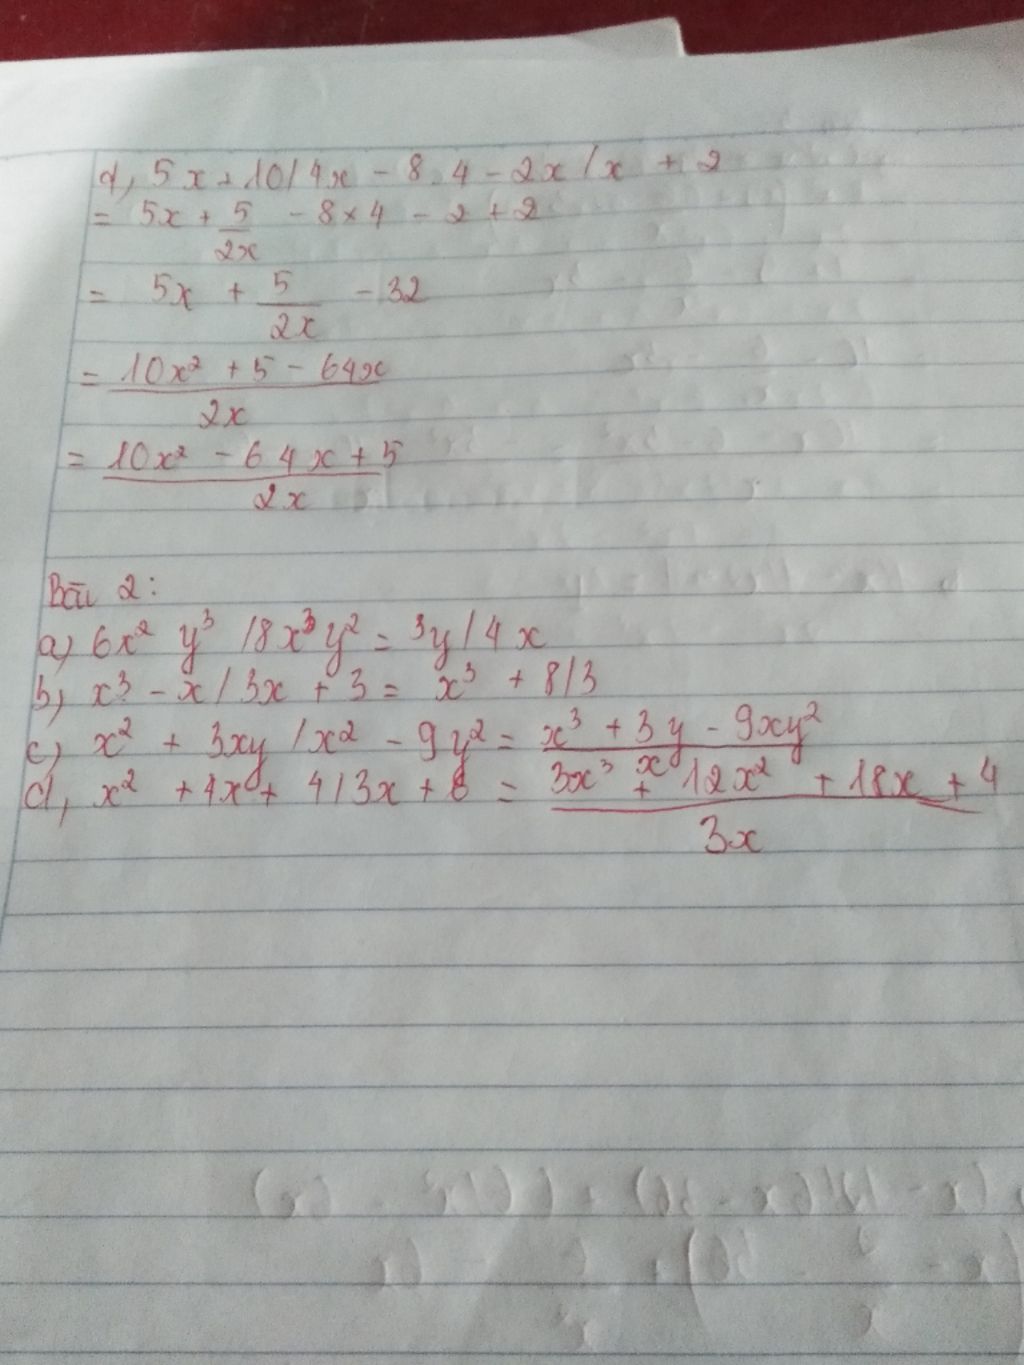 d, 5x + 10/4x - 8.4 - 2x/x + 2
= 5x + 5/2x - 8×4 - 2 + 2
= 5x + 5/2x - 32
= 10x² + 5 - 64x / 2x
= 10x² - 64x + 5 / 2x
Bài 2:
a) 6x² y³ /8x³y² = 3y/4x
b) x³ - x/3x + 3 = x³ + 8/3
c) x² + 3xy /x² - 9y² = x³ + 3y - 9xy² / x
d, x² + 4x + 4/3x + 6 = 3x³ + 12x² + 18x + 4 / 3x